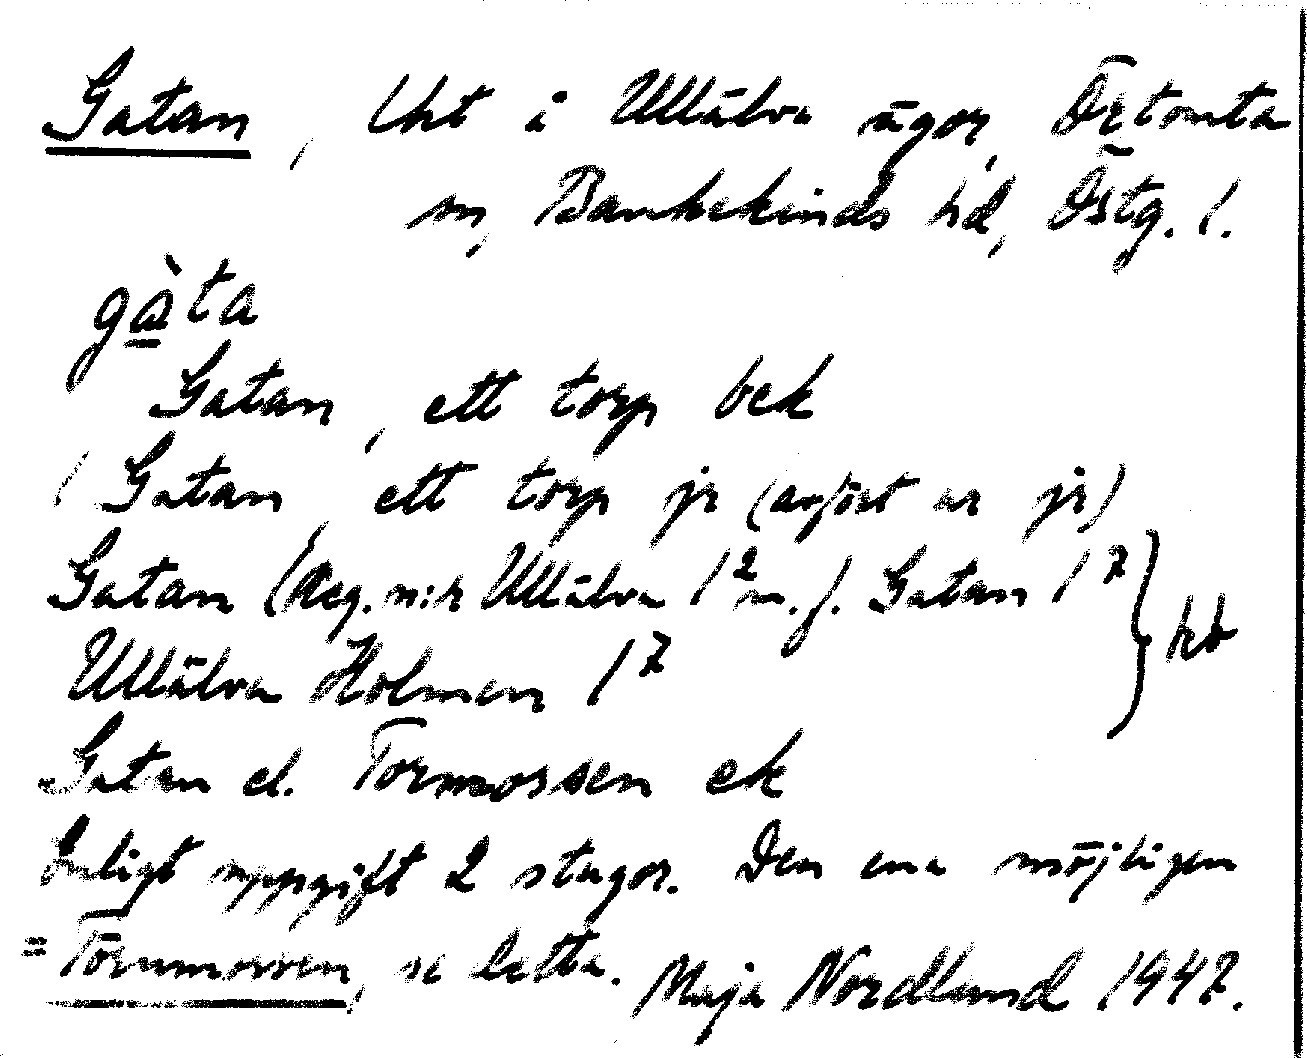 Gatan, lht i Ullälva ägor, Örtomta
sn, Bankekinds hd, Östg. l.
gàta
Gatan, ett torp bek
(Gatan, ett torp jr (avfört ur jr)
Gatan (Reg. n:r Ullälva 1² m. fl. Gatan 1⁷ } kb
Ullälva Holmen 1⁷
Gatan el. Tormossen ek
Enligt uppgift 2 stugor. Den ena möjligen
= Törnmossen, se detta. Maja Nordlund 1947.